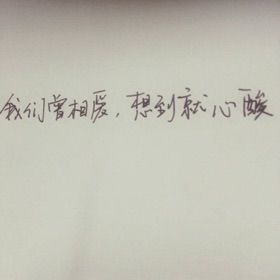 我们曾相爱，想到就心酸